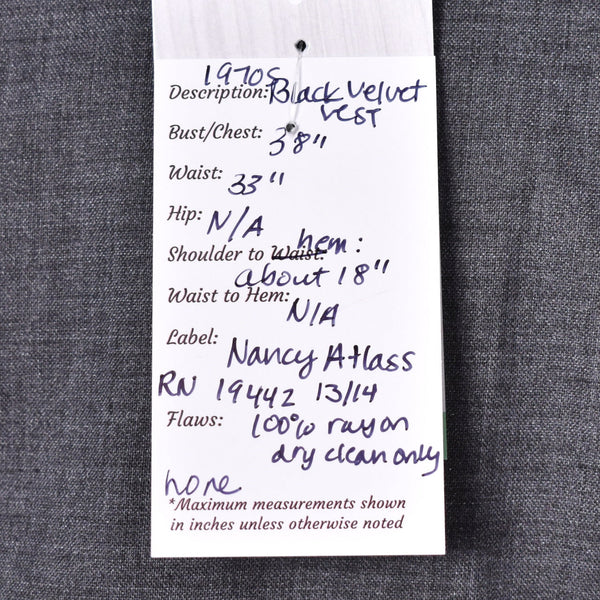 1970s
Description: Black Velvet
Vest
Bust/Chest: 38"
Waist: 33"
Hip: N/A
Shoulder to Waist: hem:
about 18"
Waist to Hem:
N/A
Label:
Nancy Atlass
RN 19442 13/14
Flaws: 100% rayon
dry clean only
none
*Maximum measurements shown
in inches unless otherwise noted